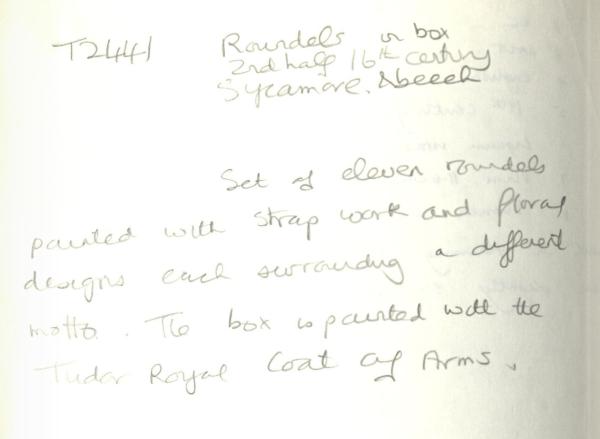 T2441 Roundels in box
2nd half 16th century
Sycamore & beech
Set of eleven roundels
painted with strap work and floral
designs each surrounding a different
motto. The box is painted with the
Tudor Royal Coat of Arms.